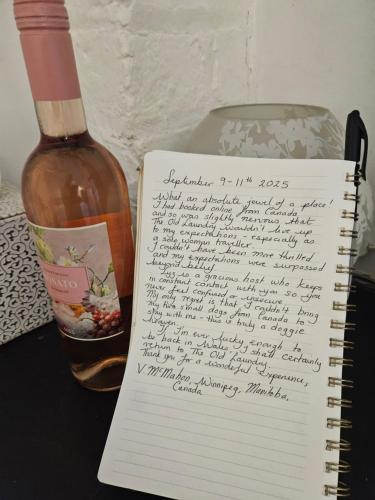 September 9-11th 2025
What an absolute jewel of a place!
I had booked online from Canada
and so was slightly nervous that
The Old Laundry wouldn't live up
to my expectations - especially as
a solo woman traveller.
I couldn't have been more thrilled
and my expectations were surpassed
beyond belief.
is a gracious host who keeps
in constant contact with you so you
never feel confused or insecure.
My only regret is that I couldn't bring
my two small dogs from Canada to
stay with me - this is truly a doggie
heaven.
If I'm ever lucky enough to
be back in Wales I shall certainly
return to The Old Laundry.
Thank you for a wonderful experience,
V McMahon, Winnipeg, Manitoba,
Canada